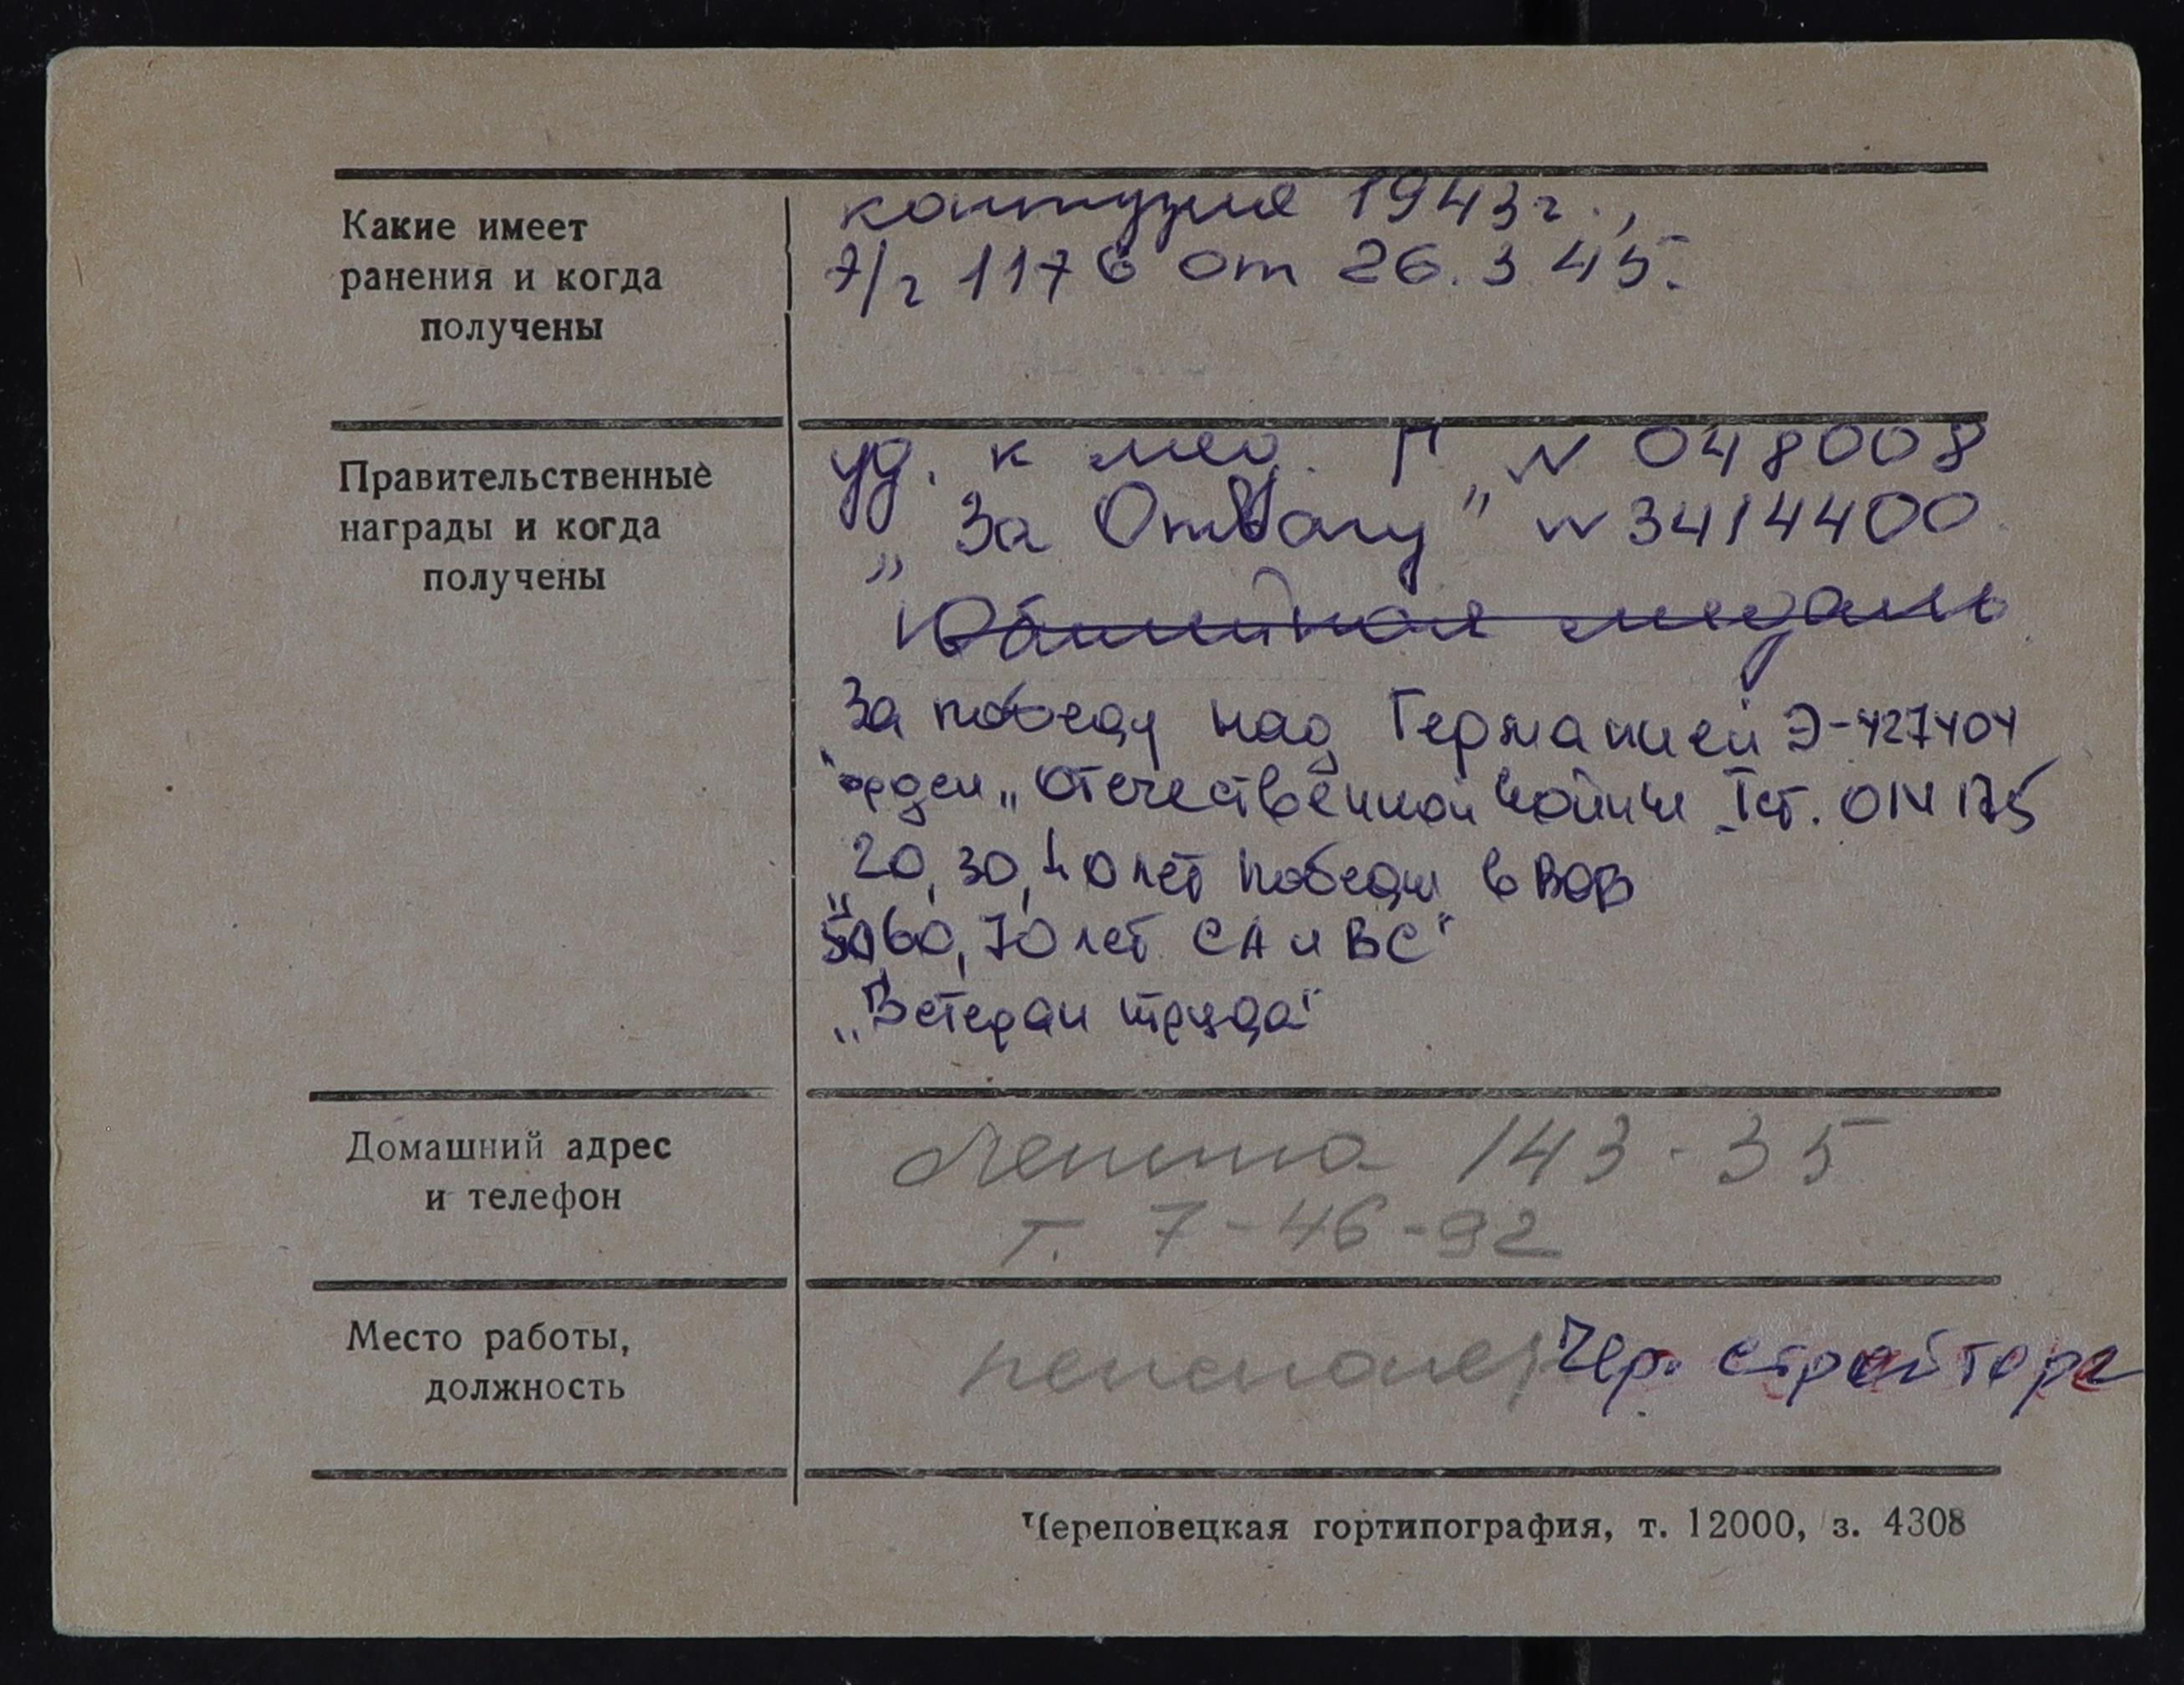 Какие имеет
ранения и когда
получены
контузия 1943г.,
э/г 1176 от 26.3.45.
Правительственные
награды и когда
получены
уд. к мед. Г N 048008
„За Отвагу" N 3414400
Юбилейная медаль
За победу над Германией Э-427404
орден „Отечественной войны Iст. 014175
„20, 30, 40 лет Победы в ВОВ
50, 60, 70 лет СА и ВС"
„Ветеран труда"
Домашний адрес
и телефон
Ленина 143-35
т. 7-46-92
Место работы,
должность
пенсионер Чер. стройторг
Череповецкая гортипография, т. 12000, з. 4308